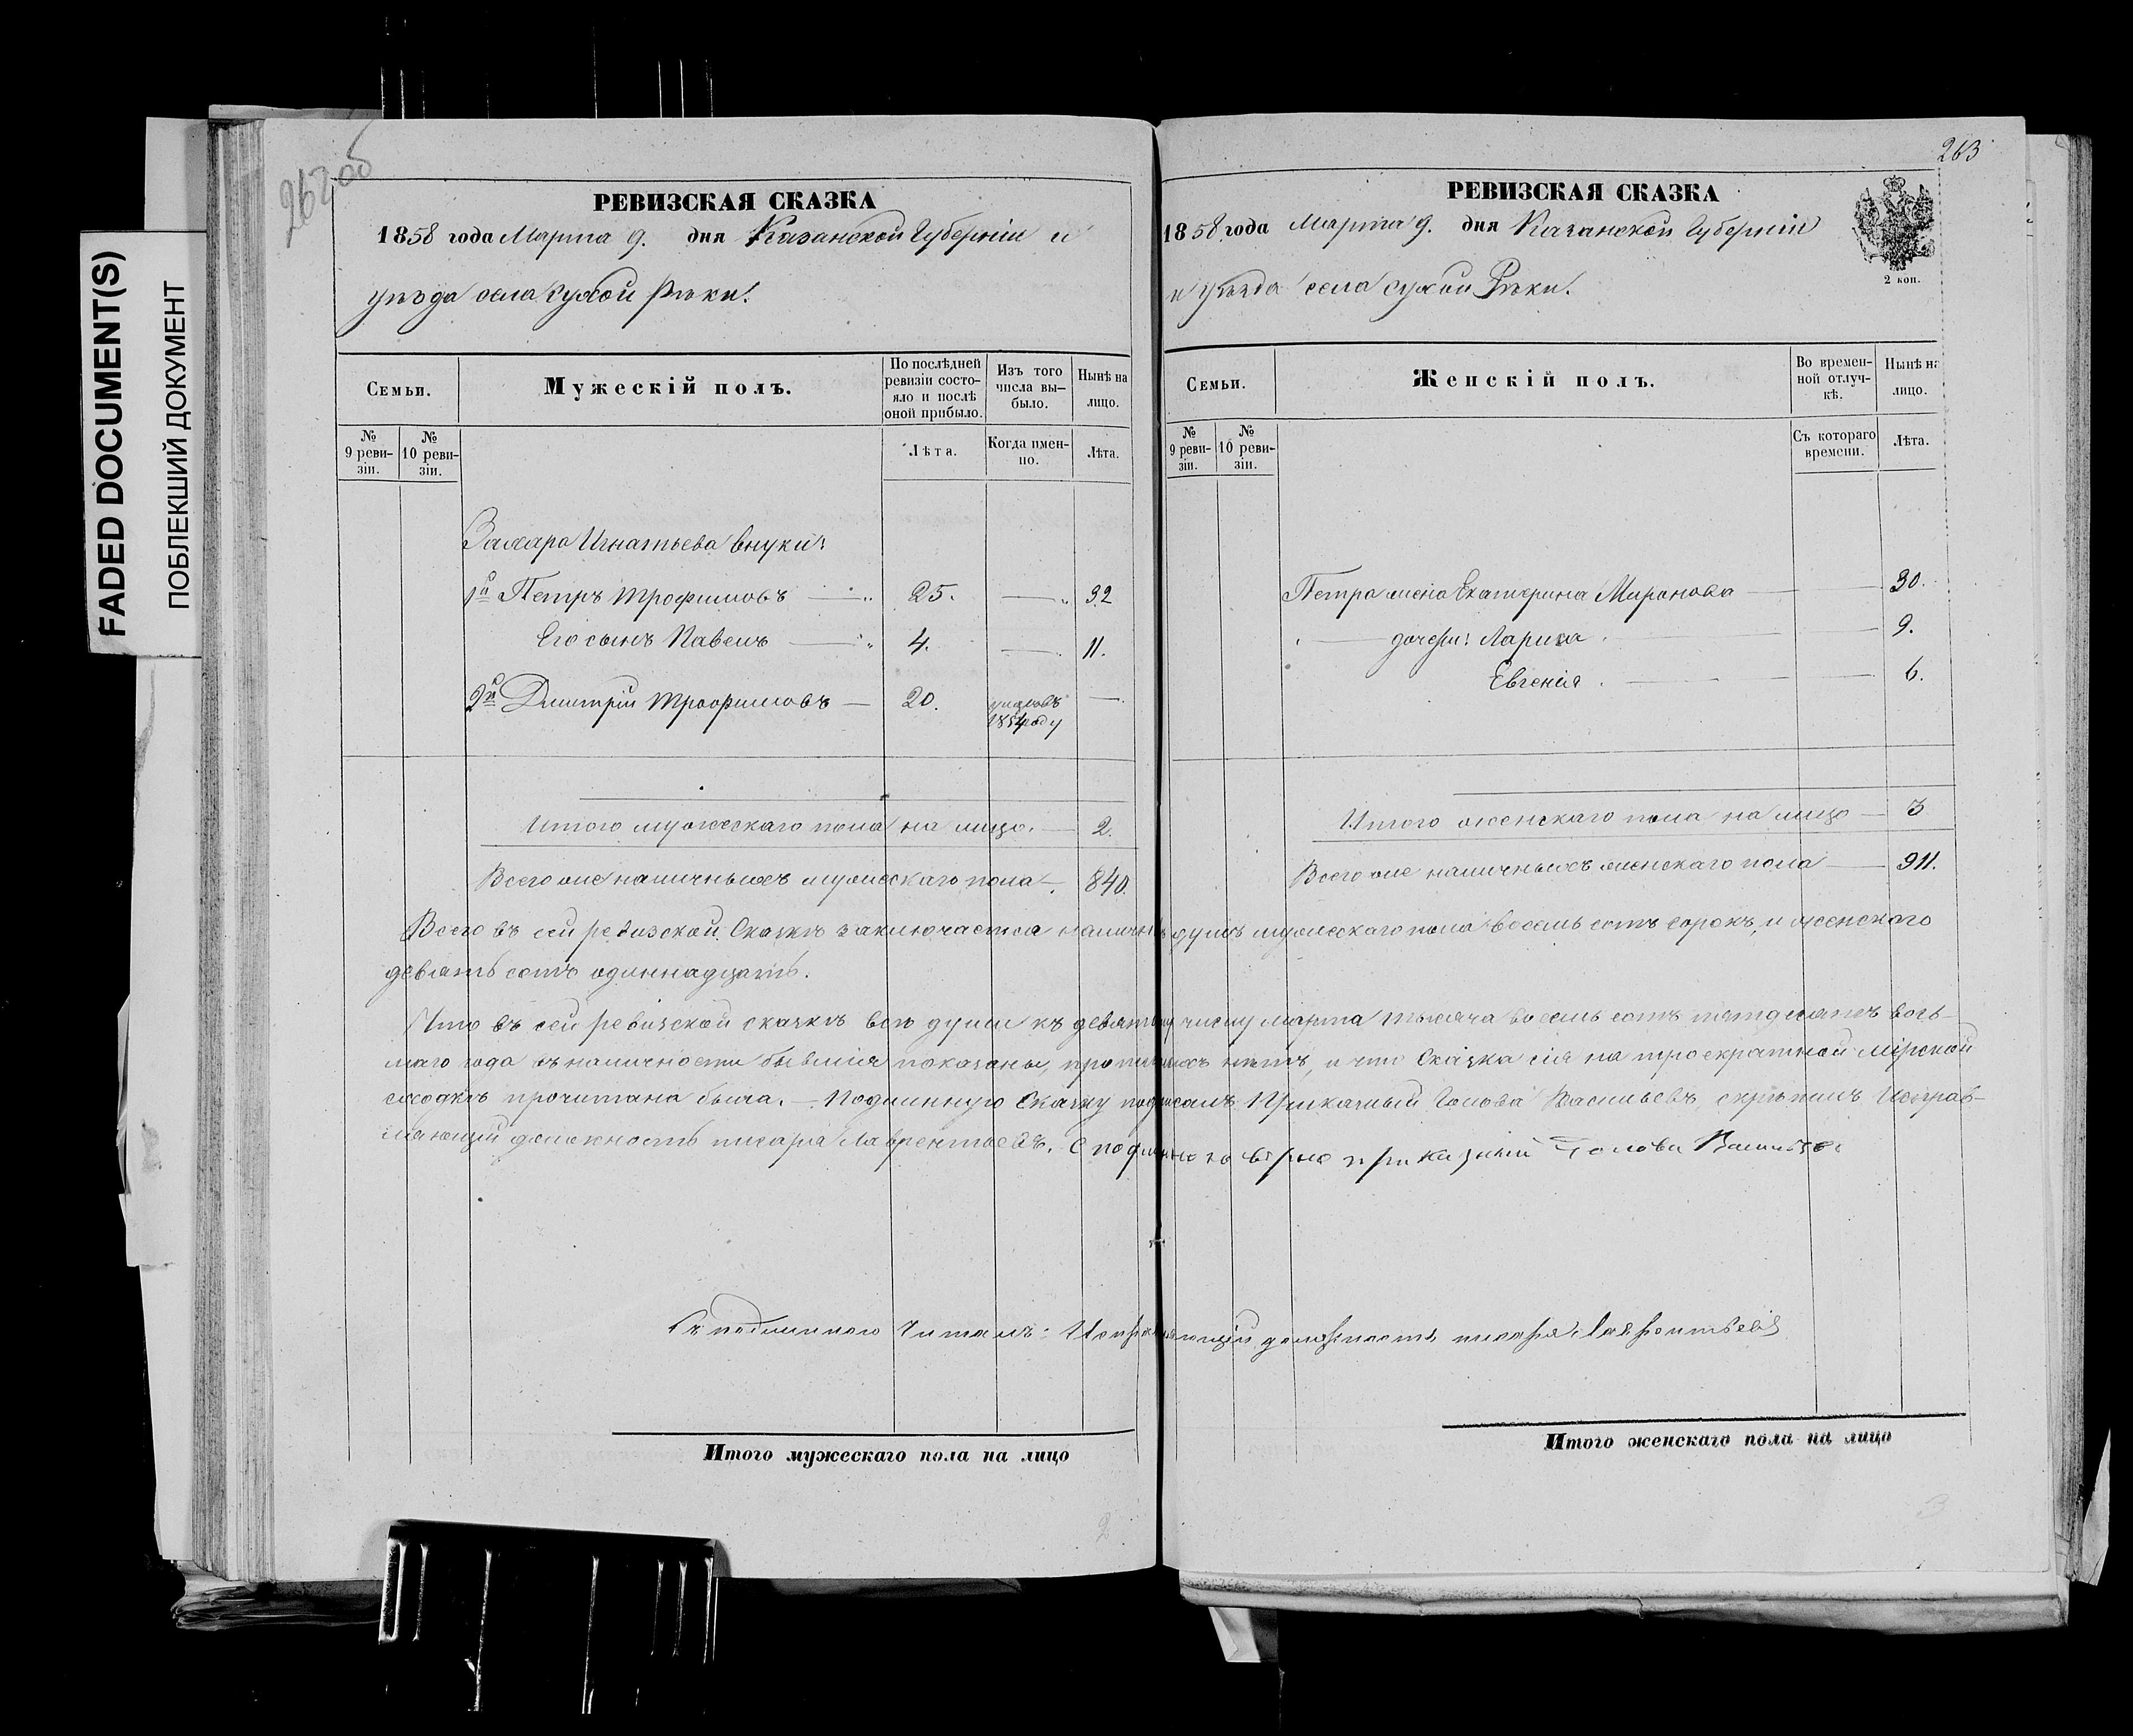 FADED DOCUMENT(S)
ПОБЛЕКШИЙ ДОКУМЕНТ
262 об
РЕВИЗСКАЯ СКАЗКА
1858 года Марта 9. дня Казанской Губерніи и
уѣзда села Сухой Рѣки.
Семьи.
Мужескій полъ.
По послѣдней ревизіи состояло и послѣ оной прибыло.
Изъ того числа вы-было.
Нынѣ на лицо.
№ 9 реви-зіи.
№ 10 реви-зіи.
Лѣта.
Когда имен-но.
Лѣта.
Захара Игнатьева внуки:
1й Петръ Трофимовъ 25. 32
Его сынъ Павелъ 4. 11.
2й Дмитрій Трофимовъ 20.
1854 году
Итого мужескаго пола на лицо. 2.
Всего же наличныхъ мужескаго пола 840.
263
РЕВИЗСКАЯ СКАЗКА
1858 года Марта 9. дня Казанской Губерніи
и Уѣзда села Сухой Рѣки.
2 коп.
Семьи.
Женскій полъ.
Во времен-ной отлуч-кѣ.
Нынѣ на лицо.
№ 9 реви-зіи.
№ 10 реви-зіи.
Съ котораго времени.
Лѣта.
Петра жена Екатерина Миронова 30.
дочери: Лариса 9.
Евгенія 6.
Итого женскаго пола на лицо 3
Всего же наличныхъ женскаго пола 911.
Всего въ сей ревизской Сказкѣ заключается наличн. душъ мужескаго пола восемь сотъ сорокъ, и женскаго
девять сотъ одиннадцать.
Что въ сей ревизской сказкѣ всѣ души къ девятому числу марта тысяча восемь сотъ пятдесятъ вось-
маго года въ наличности бывшія показаны, прописныхъ нѣтъ, и что Сказка сія на троекратной мірской
сходкѣ прочитана была. Подлинную Сказку подписалъ Приказный Голова Васильевъ, скрѣпилъ Исправ-
ляющій должность писаря Лаврентьевъ. С подлиннымъ вѣрно приказный Голова Васильевъ
Съ подлиннымъ читалъ: Исправляющій должность писаря Лаврентьевъ
Итого мужескаго пола на лицо
Итого женскаго пола на лицо
2
3